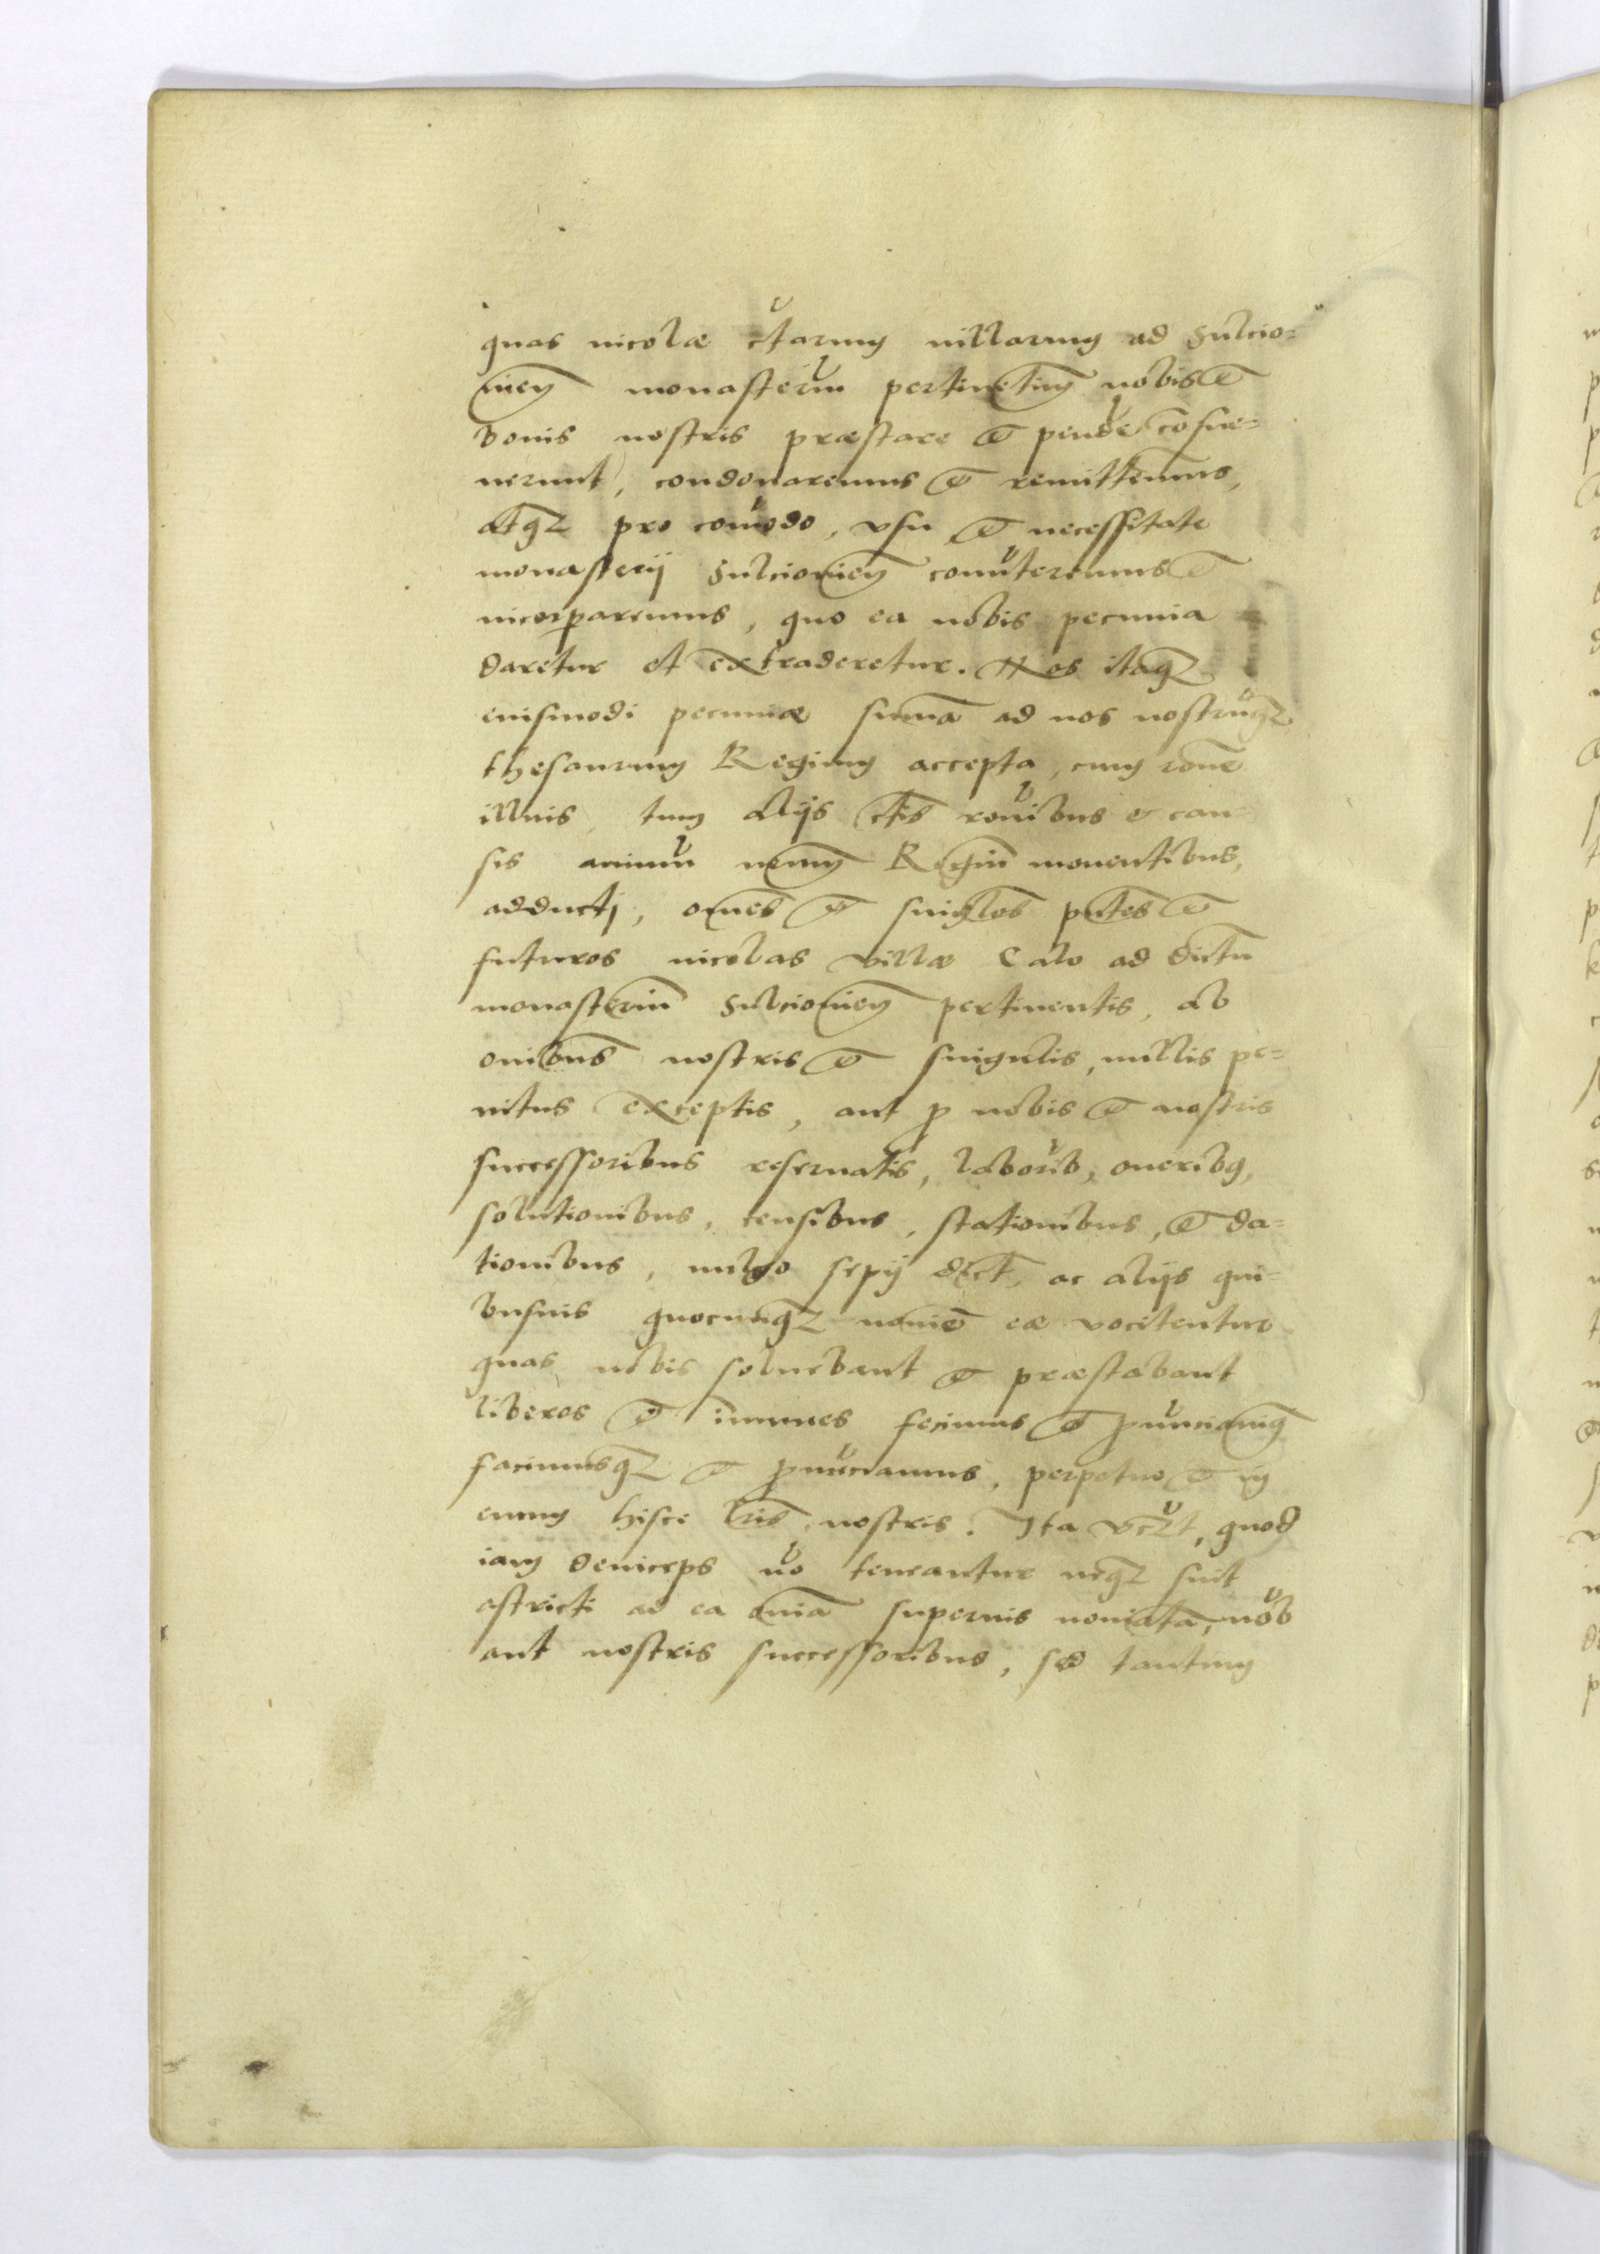 quas incolæ cetarum villarum ad Sulcio=
vien̄ monasteriu pertinētium nobis et
bonis nostris præstare et pendē cōsue=
uerunt, condonaremus et remitteremus,
atq₃ pro com̄odo, vsu et necessitate
monasterij Sulciovien̄ conuerteremus et
incorparemus, quo ea nobis pecunia
daretur et extraderetur. Nos itaq₃
eiusmodi pecuniæ sum̄a ad nos nostrūq₃
thesaurum Regium accepta, cum rōne
illius, tum alijs ctis rōnibus et cau
sis animū nrum Regiū mouentibus,
adducti, om̄es et singlos pn̄tes et
futuros incolas villæ Calo ad dictū
monasteriū Sulciovien̄ pertinentis, ab
om̄ibus nostris et singulis, nullis pe=
nitus exceptis, aut ꝓ nobis et nostris
successoribus reseruatis, laborib, oneribq,
solutionibus, censibus, stationibus, et da=
tionibus, vulgo sepij dict, ac alijs qui=
busuis quocunq₃ nomiē eæ vocitentur
quas nobis soluebant et præstabant
liberos et im̄unes fecimus et ꝓnūciauimq
facimusq₃ et ꝓnūciamus, perpetuo et in
euum hisce lris nostris. Ita vcꝫt, quod
iam deinceps nō teneantur neq₃ sint
astricti ad ea om̄ia superius nomīata, nob
aut nostris successoribus, sed tantum